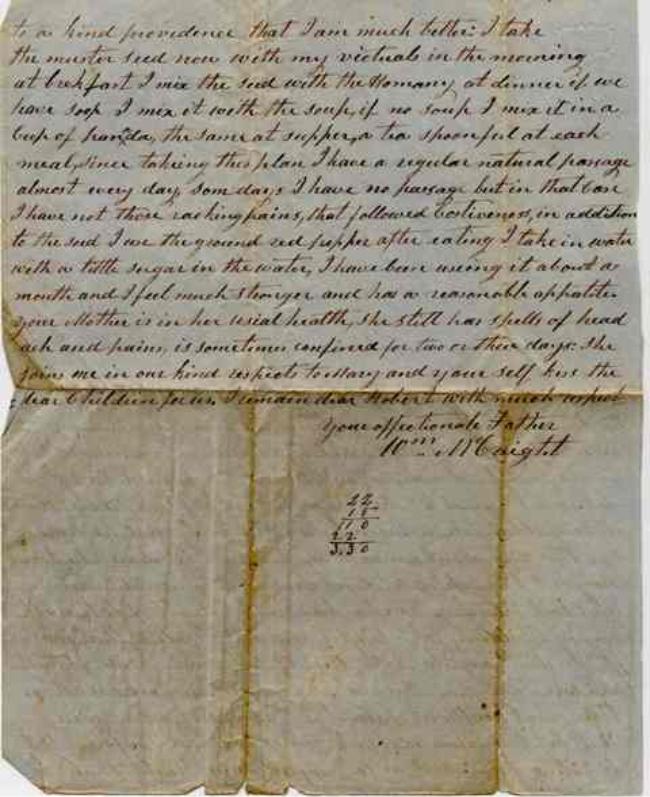 to a kind providence that I am much better: I take
the muster seed now with my victuals in the morning
at brekfast I mix the seed with the Homany at dinner if we
have soop I mix it with the soup, if no soup I mix it in a
Cup of the same at supper, a tea spoonful at each
meal, since takeing this plan I have a regular natural passage
almost every day, som days I have no passage but in that Case
I have not those racking pains, that followed Costiveness, in addition
to the seed I use the ground red pepper after eating I take in water
with a little sugar in the water, I have been useing it about a
month and I feel much stronger and has a reasonable appatite.
your Mother is in her usial health, she still has spells of head
ach and pains, is sometimes confined for two or three days: she
joins me in our kind respects to Mary and your self kiss the
dear Children for us, I remain dear Robert with much respect
your affectionate Father
Wm
22
15
110
22
330